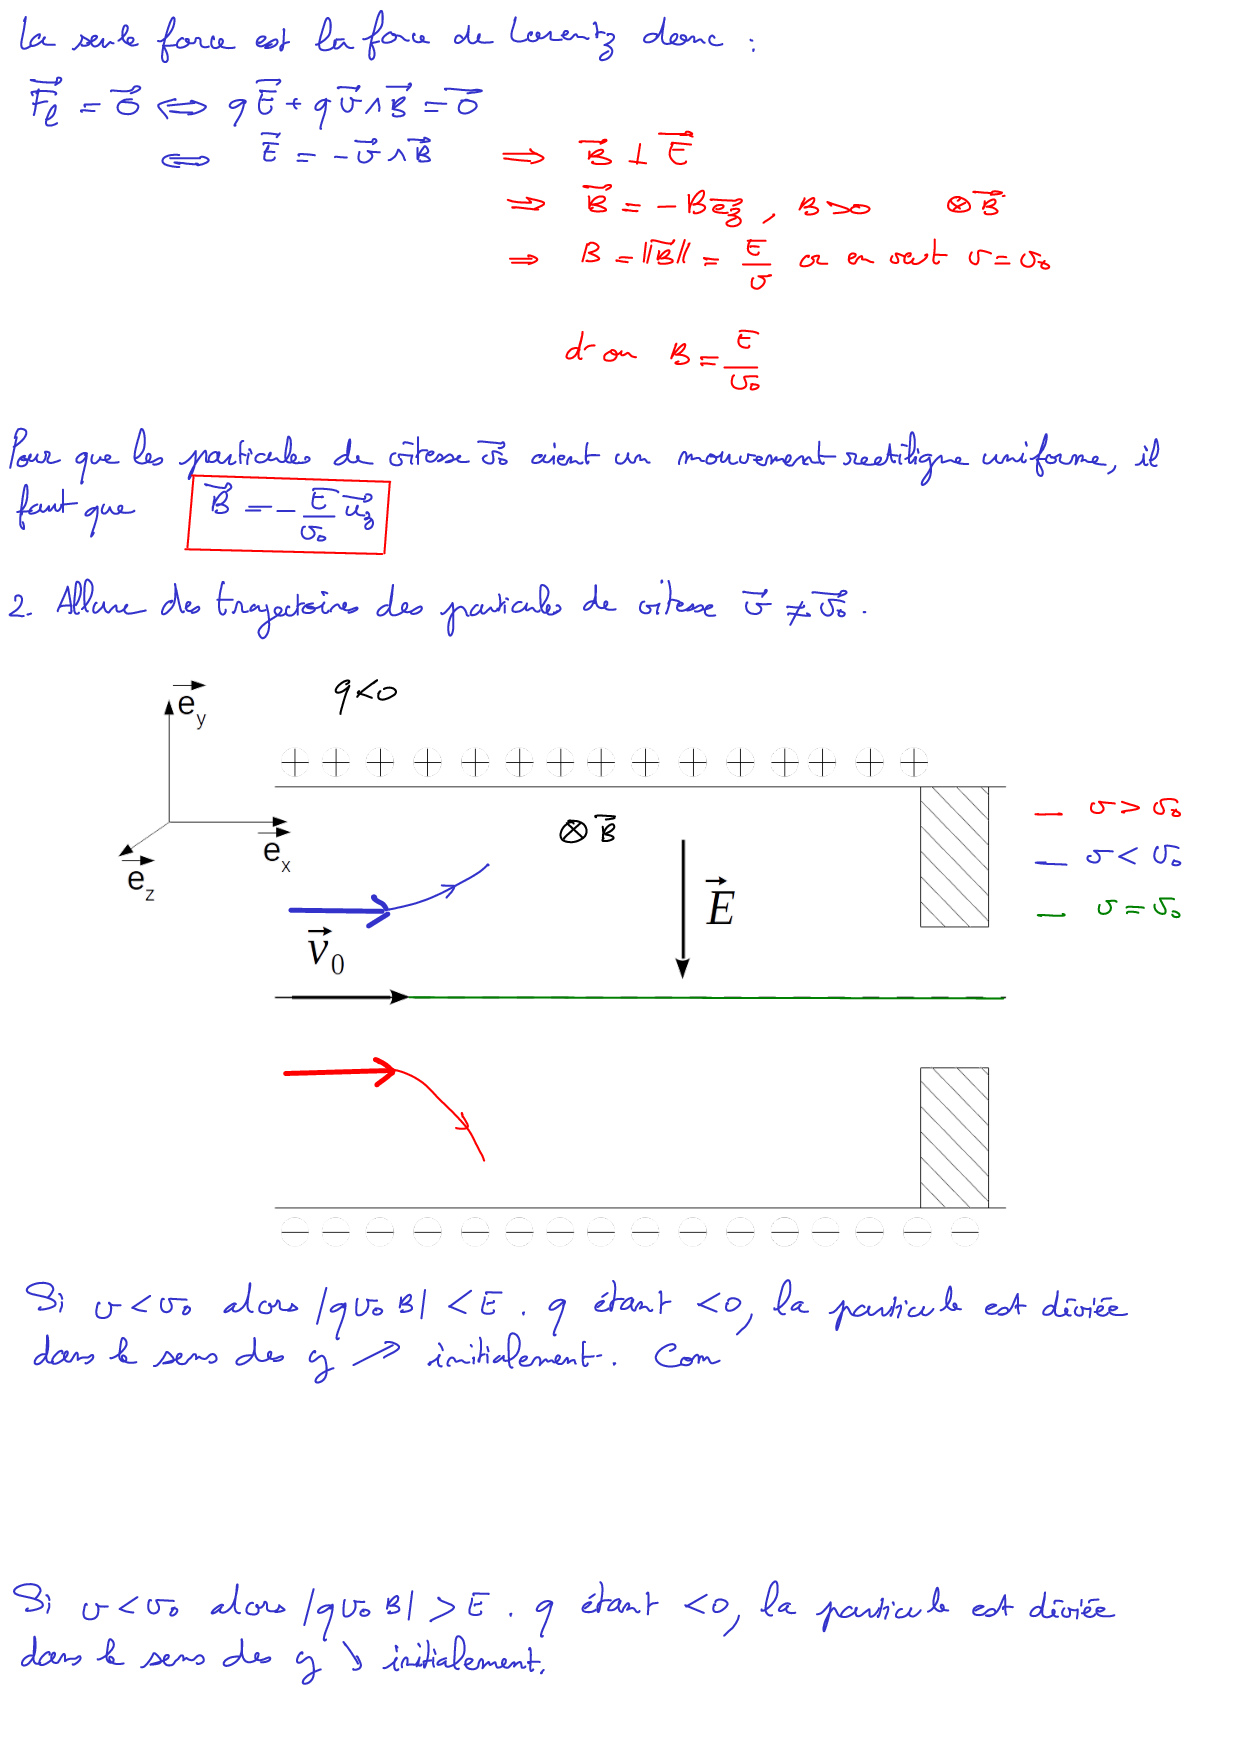 La seule force est la force de Lorentz donc :
$\vec{F_l} = \vec{0} \Leftrightarrow q\vec{E} + q\vec{v} \wedge \vec{B} = \vec{0}$
$\Leftrightarrow \vec{E} = -\vec{v} \wedge \vec{B}$ $\Rightarrow \vec{B} \perp \vec{E}$
$\Rightarrow \vec{B} = -B\vec{e_z}$, $B > 0$ $\otimes \vec{B}$
$\Rightarrow B = \|\vec{B}\| = \frac{E}{v}$ or on veut $v = v_0$
d'où $B = \frac{E}{v_0}$
Pour que les particules de vitesse $\vec{v_0}$ aient un mouvement rectiligne uniforme, il
faut que $\vec{B} = -\frac{E}{v_0}\vec{u_z}$
2. Allure des trajectoires des particules de vitesse $\vec{v} \neq \vec{v_0}$.
$q < 0$
$\vec{e}_y$
+ + + + + + + + + + + + + + +
$\vec{e}_x$
$\vec{e}_z$
$\otimes \vec{B}$
— $v > v_0$
— $v < v_0$
— $v = v_0$
$\vec{E}$
$\vec{v}_0$
− − − − − − − − − − − − − − − −
Si $v < v_0$ alors $|q v_0 B| < E$. q étant < 0, la particule est déviée
dans le sens des y ↗ initialement. Com
Si $v < v_0$ alors $|q v_0 B| > E$. q étant < 0, la particule est déviée
dans le sens des y ↘ initialement.